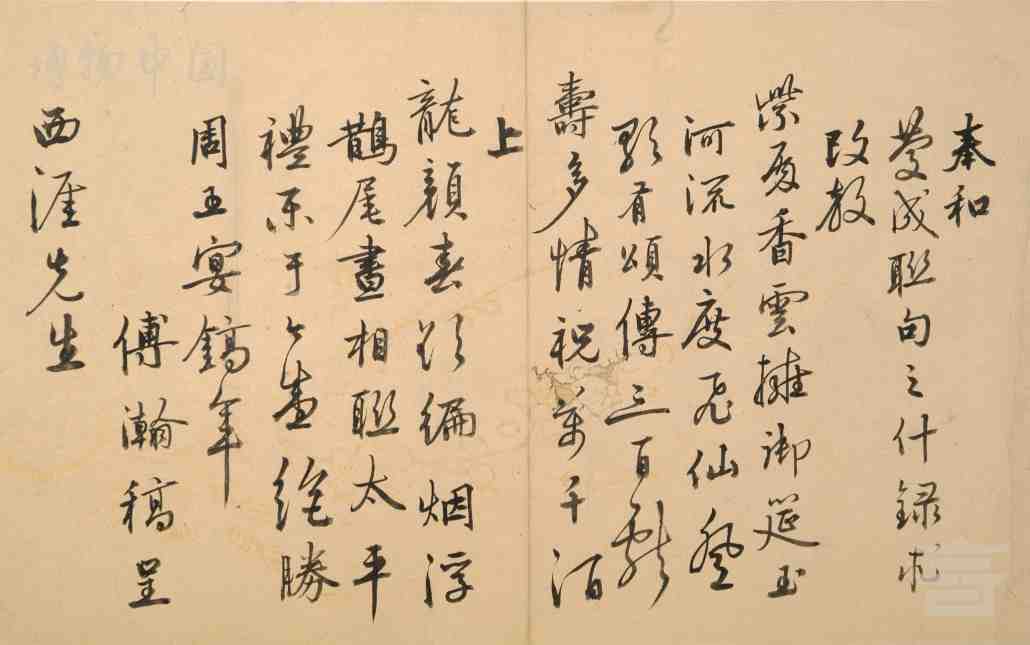 奉和
慶成聯句之什録求
改教
紫廈香雲擁御筵玉
河流水度飛仙登
歌有頌傳三百獻
壽多情祝萬千酒
上
龍顔春欲徧烟浮
鵲尾晝相聯太平
禮樂于今盛絶勝
周王宴鎬年
傅瀚稿呈
西涯先生
博物中国